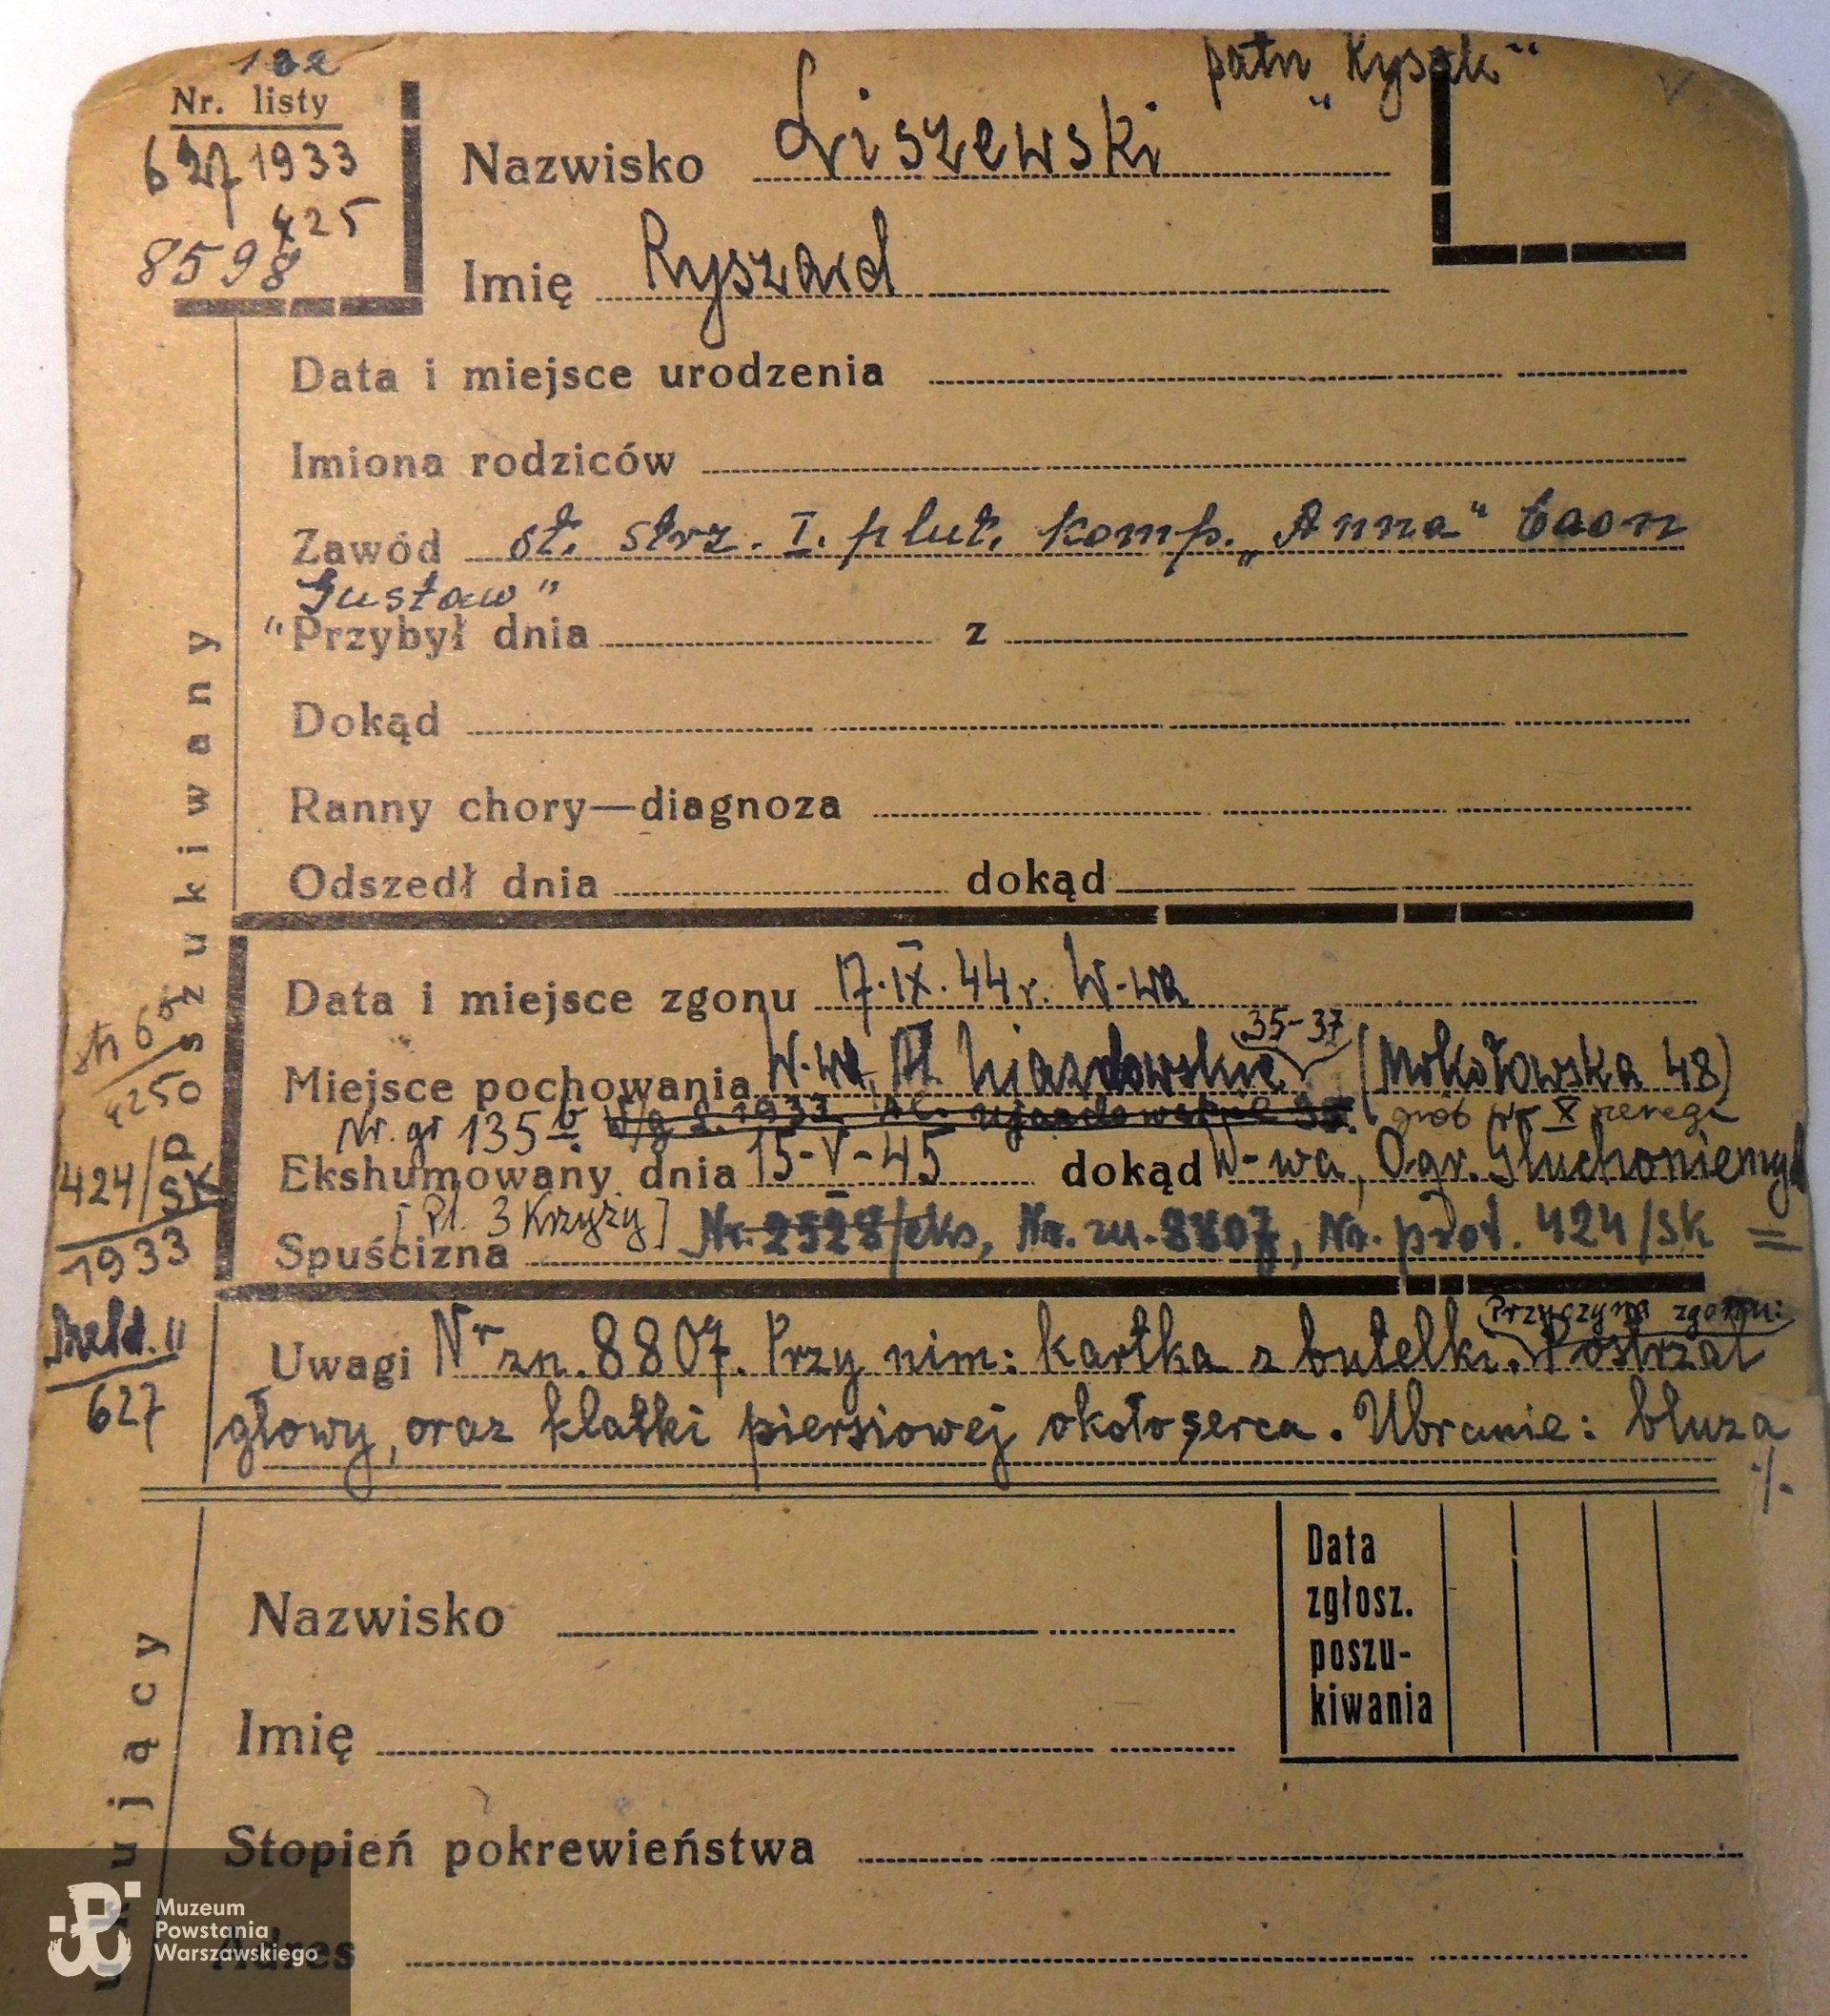 132
Nr. listy
627 1933
425
8598
patrz "Rysak"
Nazwisko Liszewski
Imię Ryszard
Data i miejsce urodzenia
Imiona rodziców
Zawód st. strz. I. plut. komp. „Anna" baon
"Gustaw"
Przybył dnia z
Dokąd
Ranny chory—diagnoza
Odszedł dnia dokąd
Poszukiwany
Data i miejsce zgonu 17.IX.44r. W-wa
35-37
Miejsce pochowania W-wa, Al. Ujazdowskie (Mokotowska 48)
Nr. gr 135 W/g L. 1933 Al. Ujazdowskie 37. grób nr X szeregi
Ekshumowany dnia 15-V-45 dokąd W-wa, Ogr. Głuchoniemych
[Pl. 3 Krzyży] Nr. 2528/eks, Nr. zn. 8807, Nr. prot. 424/SK =
Spuścizna
str 6
4250
424/SK
1933
Meld. 11
627
Przyczyna zgonu:
Uwagi Nr zn. 8807. Przy nim: kartka z butelki. Postrzał
głowy, oraz klatki piersiowej około serca. Ubranie: bluza
./.
Nazwisko
Imię
Data
zgłosz.
poszu-
kiwania
Stopień pokrewieństwa
Adres
ukujący
Muzeum
Powstania
Warszawskiego